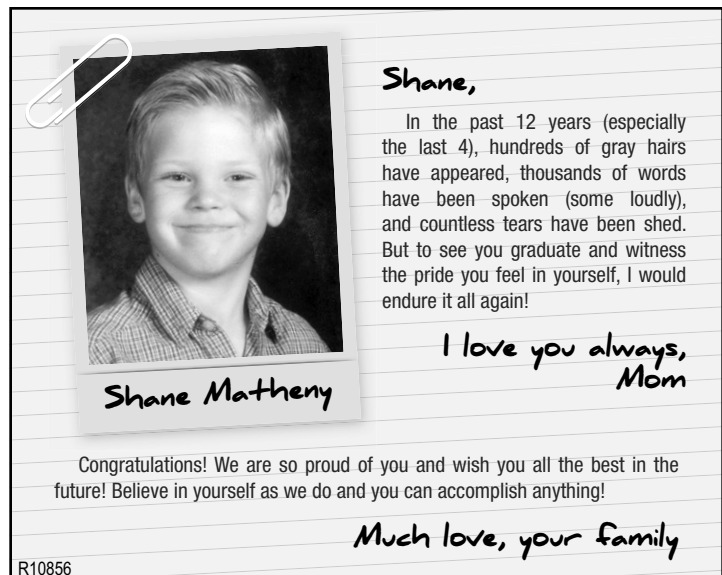 Shane,
In the past 12 years (especially
the last 4), hundreds of gray hairs
have appeared, thousands of words
have been spoken (some loudly),
and countless tears have been shed.
But to see you graduate and witness
the pride you feel in yourself, I would
endure it all again!
I love you always,
Mom
Shane Matheny
Congratulations! We are so proud of you and wish you all the best in the
future! Believe in yourself as we do and you can accomplish anything!
Much love, your family
R10856